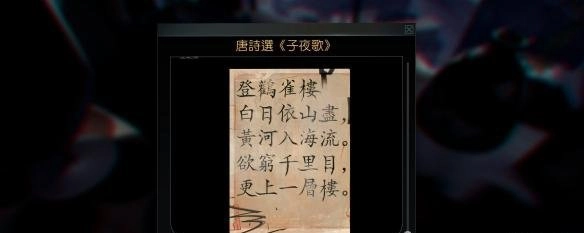 唐詩選《子夜歌》
登鸛雀樓
白日依山盡，
黃河入海流。
欲窮千里目，
更上一層樓。